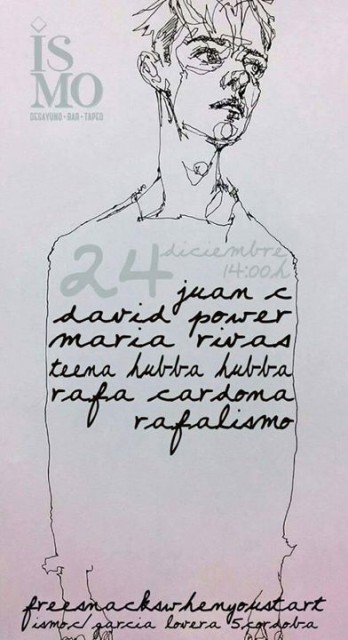 iSMO
DESAYUNO·BAR·TAPEO
24 diciembre
14:00h
juan c
david power
maria rivas
teena hubba hubba
rafa cardona
rafalismo
freesnackswhenyoustart
ismo.c/ garcia lovera 5,cordoba